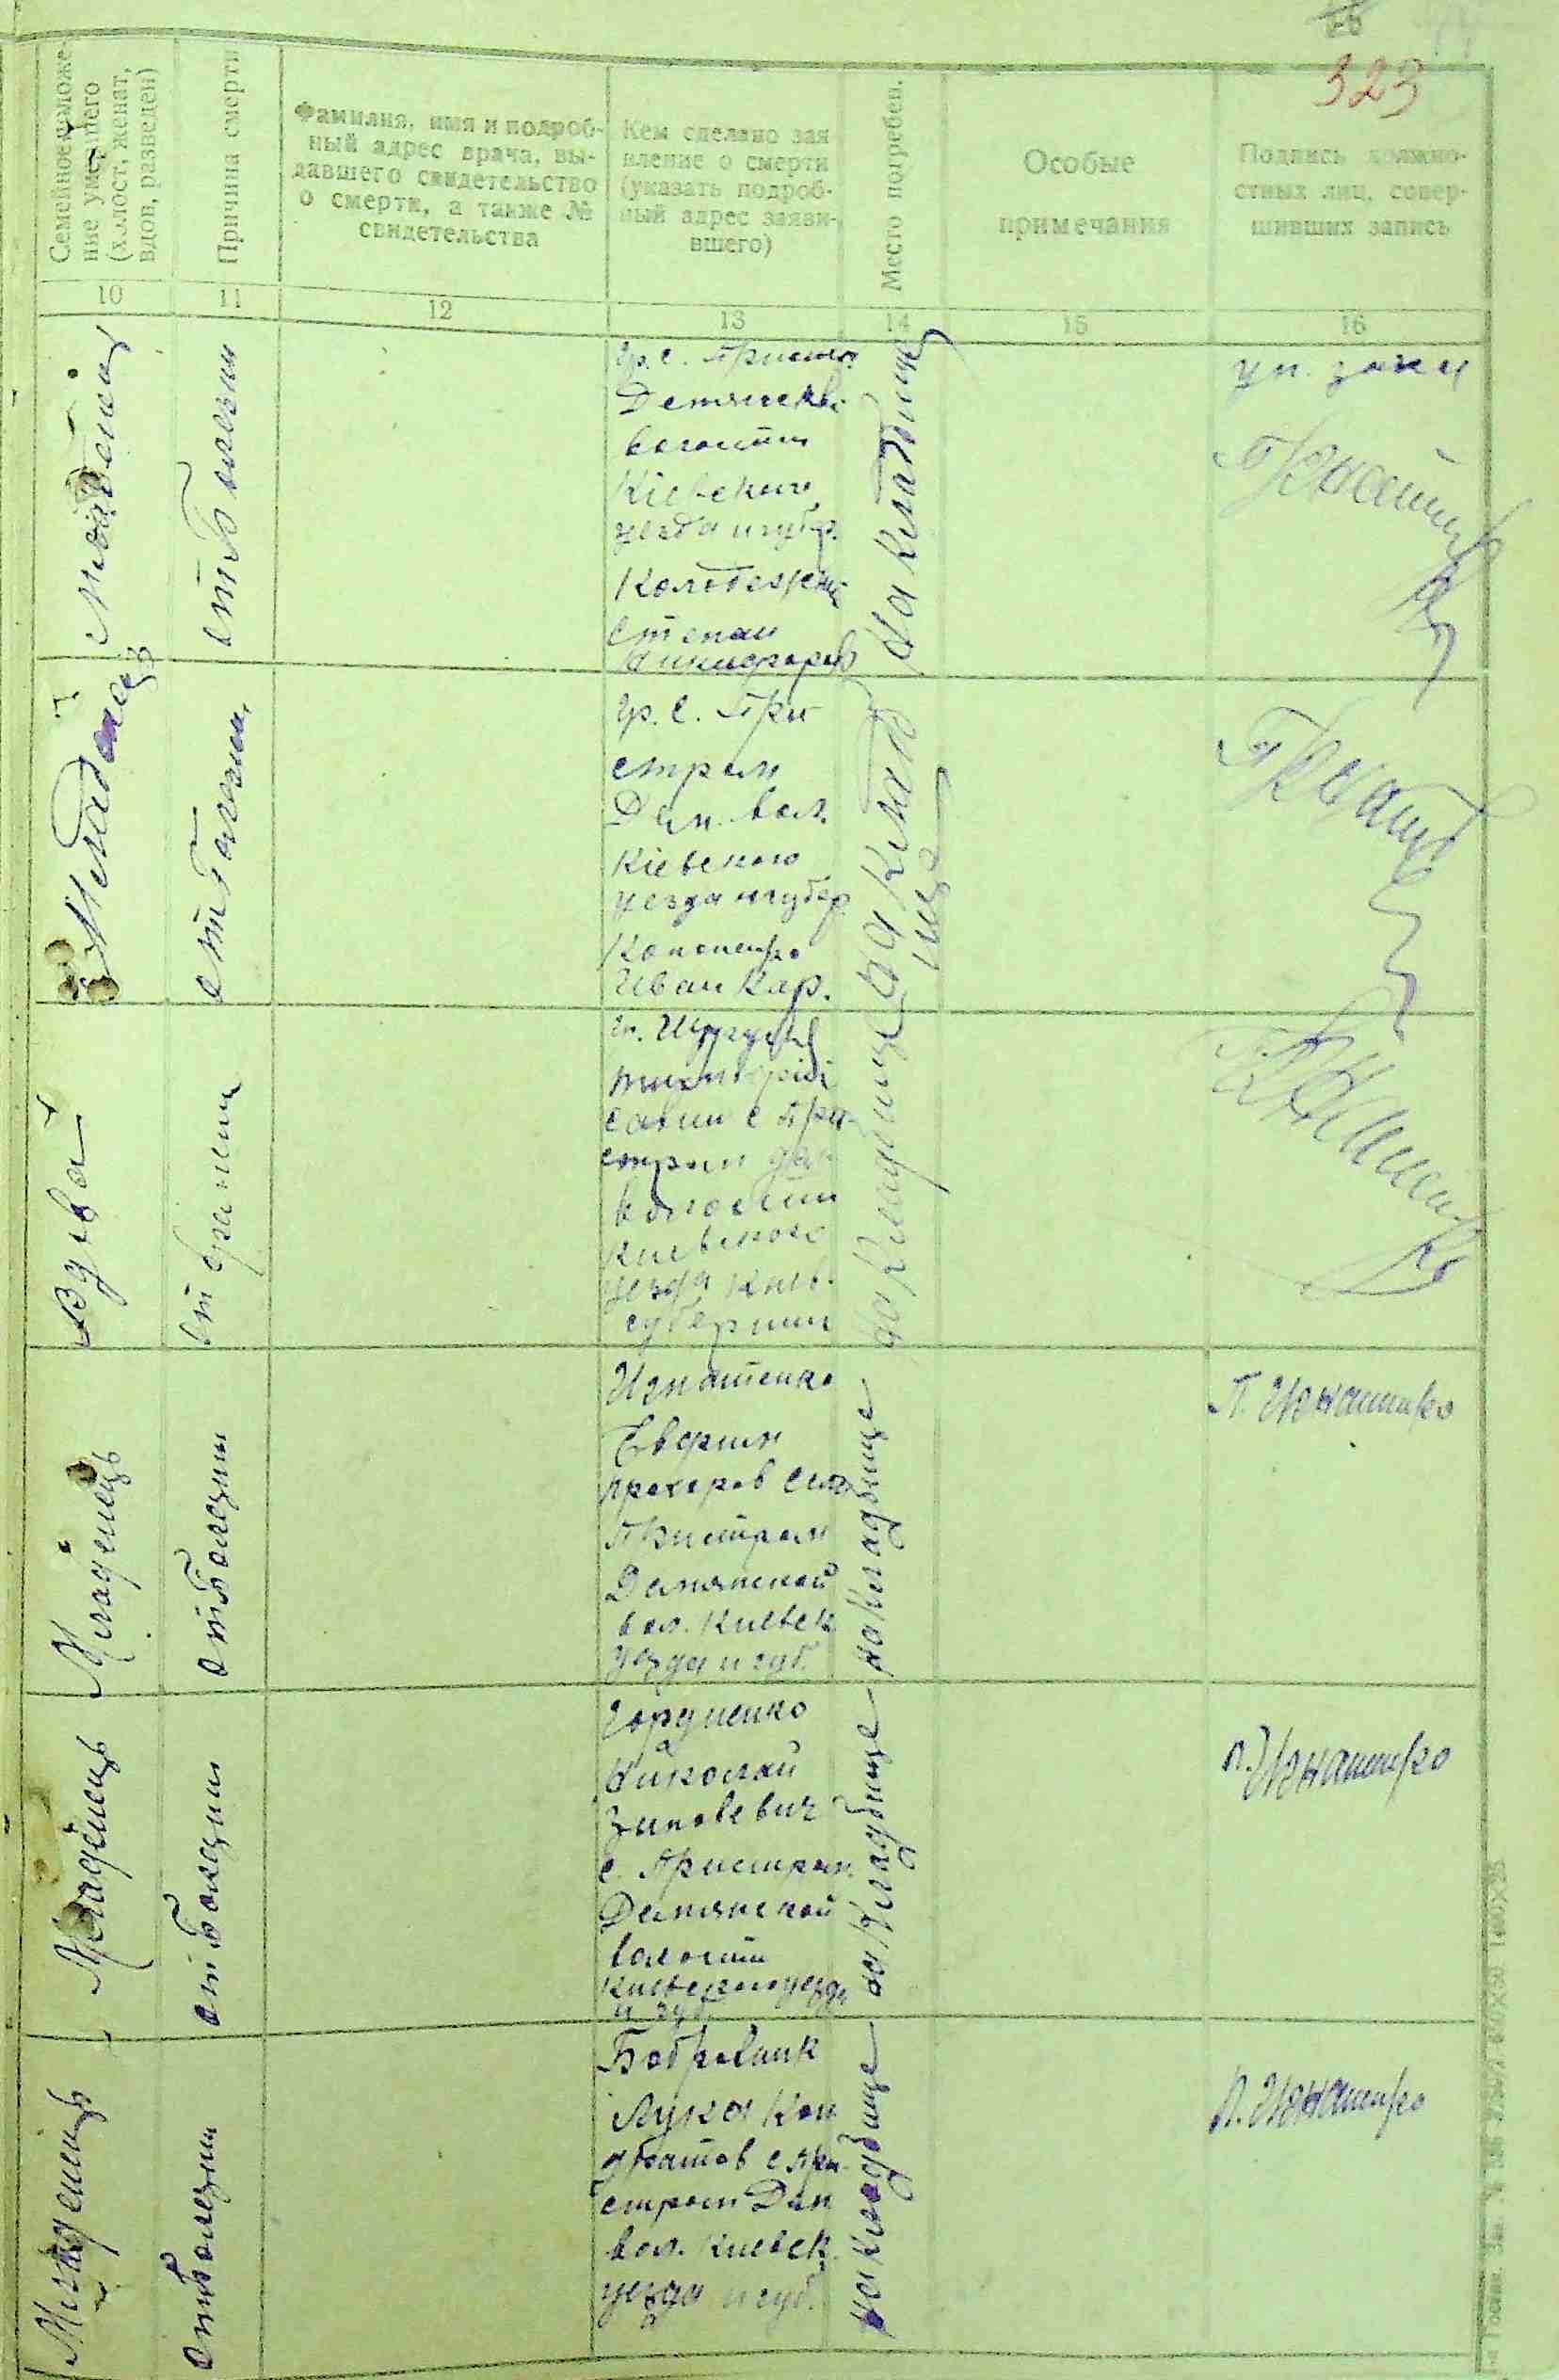 323
Семейное положе-
ние умершего
(холост, женат,
вдов, разведен)
Причина смерти
Фамилия, имя и подроб-
ный адрес врача, вы-
давшего свидетельство
о смерти, а также №
свидетельства
Кем сделано зая
вление о смерти
(указать подроб-
ный адрес заяви-
вшего)
Место погребен.
Особые
примечания
Подпись должно-
стных лиц, совер-
шивших запись
10
11
12
13
14
15
16
от болезни
Гр. С.
волости
Кіевского
уезда и губер.
Степан
Никифоров
на кладбище
уп. загса
Младенец
от болезни
Гр. С. При
стром
Дим. вол.
Кіевского
уезда и губер
Кононенко
Иван Кар.
на кладб
ище
Вдова
от
с При-
стром
волости
Киевского
уезда Киев.
губернии
на кладбище
Младенець
от болезни
Игнатенко
Прохоров село
Пристром
Демянской
вол. Киевск
уезда и губ.
на кладбище
П. Игнатенко
Младенець
от болезни
Гордиенко
Николай
Зиновевич
с. Пристром
Демянской
волости
Киевского уезда
и губ.
на кладбище
П. Игнатенко
Младенець
от болезни
Бобровник
Лука Кон
дратов с При-
стром Дем
вол. Киевск.
уезда и губ.
на кладбище
П. Игнатенко